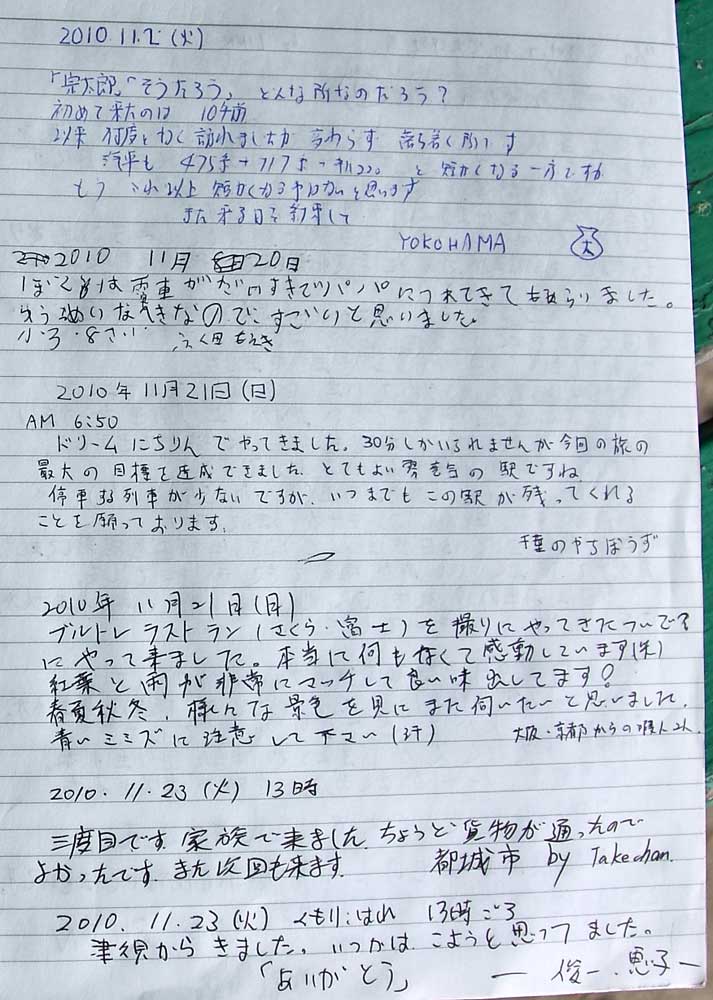 2010.11.2 (火)
「宗太郎」「そうたろう」 どんな所なのだろう?
初めて来たのは 10年前
以来 何度となく訪れましたが 変わらず 落ち着く所です
汽車も 475系→717系→キハ220 と 短かくなる一方ですが
もう これ以上 短かくなる事はないと思います
また来る日を約束して
YOKOHAMA 大
2010 11月 20日
ぼくは電車がだいすきでパパにつれてきてもらいました。
ゆう名な駅なのですごいと思いました。
小3・8さい
2010年11月21日(日)
AM 6:50
ドリームにちりんでやってきました。30分しかいられませんが今回の旅の
最大の目標を達成できました とてもよい雰囲気の駅ですね
停車する列車が少ないですが、いつまでもこの駅が残ってくれる
ことを願っております。
千葉のやちぼうず
2010年 11月21日(日)
ブルトレ ラストラン(さくら・富士)を撮りにやってきたついで?
にやって来ました。本当に何もなくて感動しています(笑)
紅葉と雨が非常にマッチして良い味出してます!
春夏秋冬、様々な景色を見にまた伺いたいと思いました。
青いミミズに注意して下さい(汗) 大阪・京都からの暇人2人
2010.11.23 (火) 13時
三度目です 家族で来ました。ちょうど貨物が通ったので
よかったです。また次回も来ます。 都城市 by Takechan.
2010.11.23(火) くもり:はれ 13時ごろ
から きました。いつかは こようと思ってました。
「ありがとう」 ― 俊一・恵子 ―